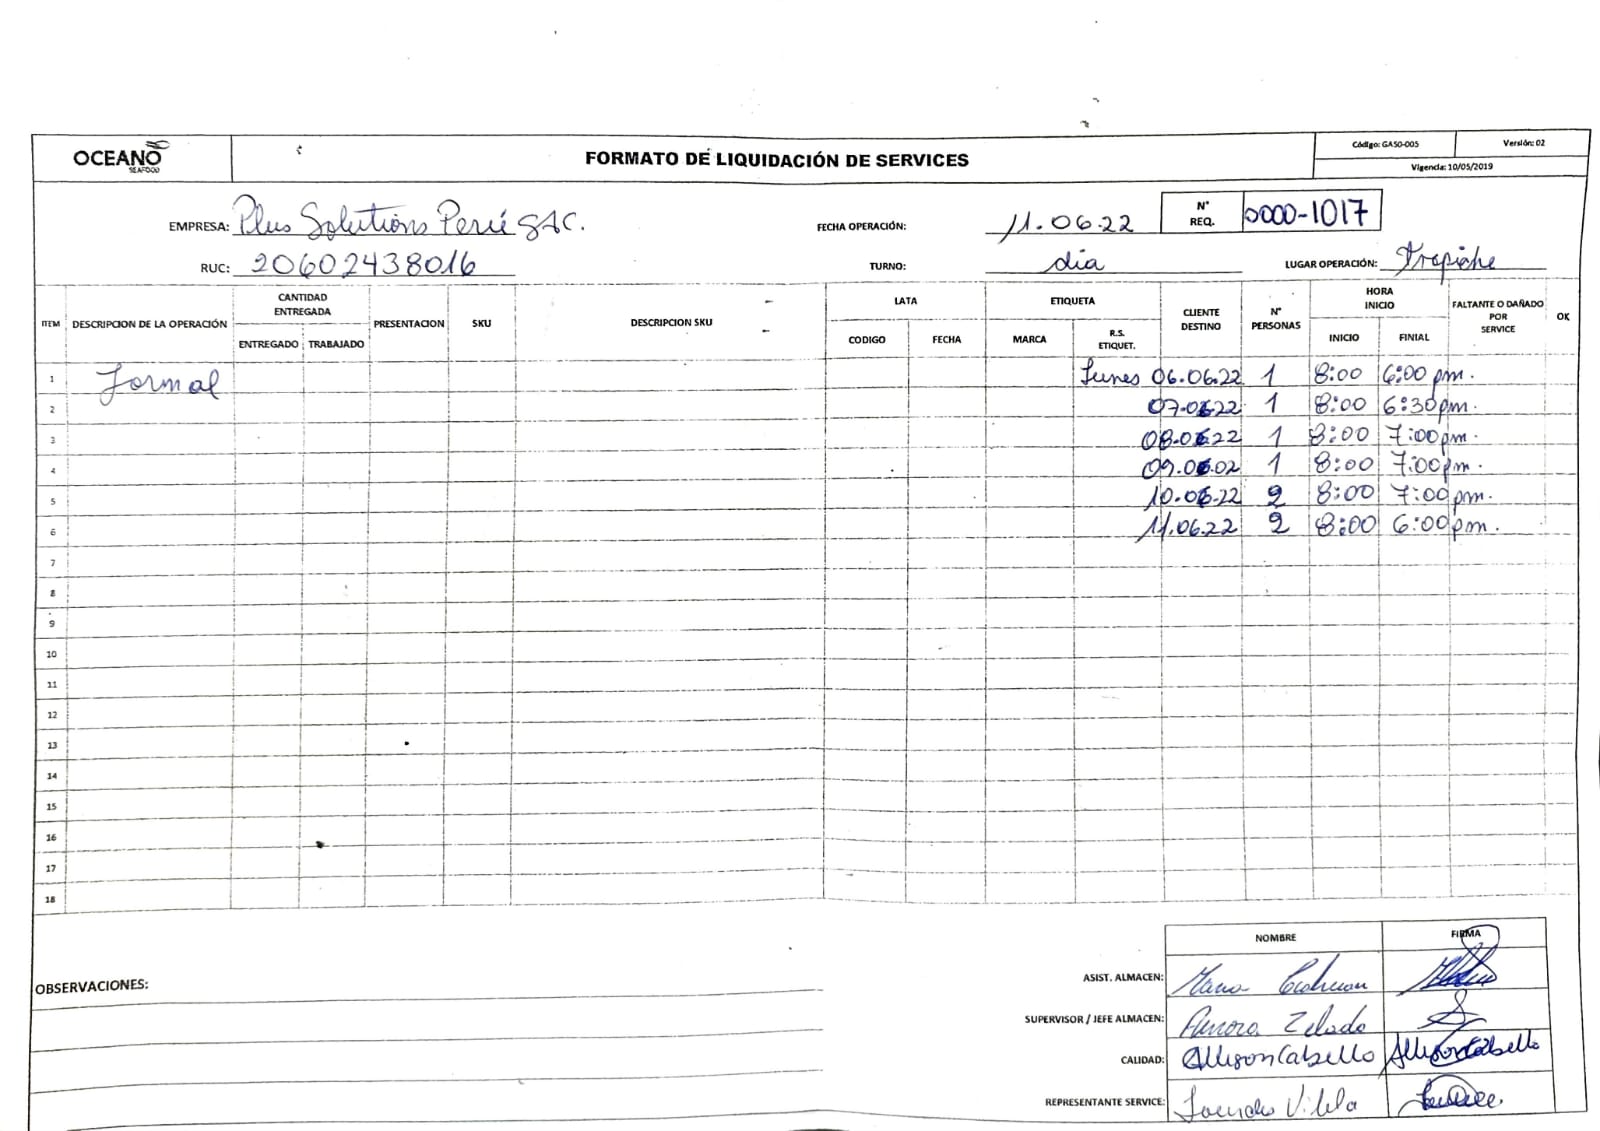 OCEANO
SEAFOOD
FORMATO DE LIQUIDACIÓN DE SERVICES
Código: GASO-005
Versión: 02
Vigencia: 10/05/2019
EMPRESA: Plus Solutions Perú SAC.
FECHA OPERACIÓN: 11.06.22
N° REQ. 0000-1017
RUC: 20602438016
TURNO: dia
LUGAR OPERACIÓN: Trapiche
ITEM DESCRIPCION DE LA OPERACIÓN CANTIDAD ENTREGADA PRESENTACION SKU DESCRIPCION SKU LATA ETIQUETA CLIENTE DESTINO N° PERSONAS HORA INICIO FALTANTE O DAÑADO POR SERVICE OK
ENTREGADO TRABAJADO CODIGO FECHA MARCA R.S. ETIQUET. INICIO FINIAL
1 Formal Lunes 06.06.22 1 8:00 6:00 pm.
2 07.06.22 1 8:00 6:30 pm.
3 08.06.22 1 8:00 7:00 pm.
4 09.06.02 1 8:00 7:00 pm.
5 10.06.22 2 8:00 7:00 pm.
6 11.06.22 2 8:00 6:00 pm.
7
8
9
10
11
12
13
14
15
16
17
18
NOMBRE FIRMA
OBSERVACIONES:
ASIST. ALMACEN: Maria
SUPERVISOR / JEFE ALMACEN: Aurora Zelada
CALIDAD: Allison Cabello Allison Cabello
REPRESENTANTE SERVICE: Vilela